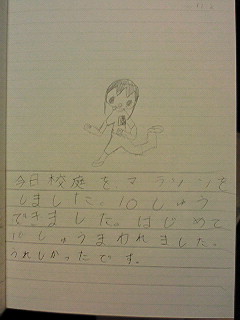 今日校庭を、マラソンを
しました。10しゅう
できました。はじめて
10しゅうまわれました。
うれしかったです。